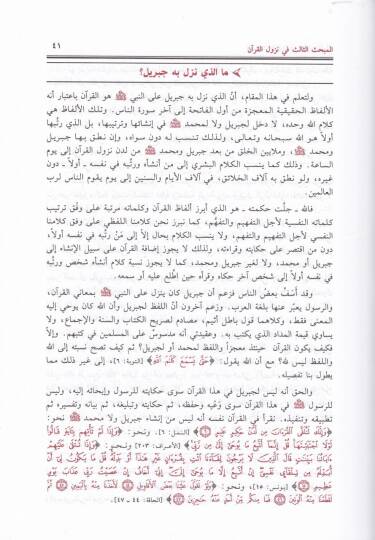 المبحث الثالث في نزول القرآن ٤١
ما الذي نزل به جبريل؟
ولتعلم في هذا المقام، أنّ الذي نزل به جبريل على النبي ﷺ هو القرآن باعتبار أنه
الألفاظ الحقيقية المعجزة من أول الفاتحة إلى آخر سورة الناس. وتلك الألفاظ هي
كلام الله وحده، لا دخل لجبريل ولا لمحمد ﷺ في إنشائها وترتيبها، بل الذي رتَّبها
أولاً هو الله سبحانه وتعالى، ولذلك تنسب له دون سواه، وإن نطق بها جبريل
ومحمد ﷺ، وملايين الخلق من بعد جبريل ومحمد ﷺ من لدن نزول القرآن إلى يوم
الساعة. وذلك كما ينسب الكلام البشري إلى من أنشأه ورتَّبه في نفسه ـ أولاً ـ دون
غيره، ولو نطق به آلاف الخلائق، في آلاف الأيام والسنين إلى يوم يقوم الناس لرب
العالمين.
فالله ـ جلَّت حكمته ـ هو الذي أبرز ألفاظ القرآن وكلماته مرتبة على وفق ترتيب
كلماته النفسية لأجل التفهيم والتفهُّم، كما نبرز نحن كلامنا اللفظي على وفق كلامنا
النفسي لأجل التفهيم والتفهم، ولا ينسب الكلام بحال إلاَّ إلى مَنْ رتَّبه في نفسه أولاً،
دون من اقتصر على حكايته وقراءته، ولذلك لا يجوز إضافة القرآن على سبيل الإنشاء إلى
جبريل أو محمد، ولا لغير جبريل ومحمد، كما لا يجوز نسبة كلام أنشأه شخص ورتَّبه
في نفسه أولاً إلى شخص آخر حكاه وقرأه حين اطَّلع عليه أو سمعه.
وقد أَسَفَّ بعضُ الناس فزعم أن جبريل كان ينزل على النبي ﷺ بمعاني القرآن،
والرسول يعبِّر عنها بلغة العرب. وزعم آخرون أنّ اللفظ لجبريل وأن الله كان يوحي إليه
المعنى فقط، وكلاهما قول باطل أثيم، مصادم لصريح الكتاب والسنة والإجماع، ولا
يساوي قيمة المداد الذي يكتب به. وعقيدتي أنه مدسوسٌ على المسلمين في كتبهم. وإلاَّ
فكيف يكون القرآن حينئذ معجزاً واللفظ لمحمد أو لجبريل؟ ثم كيف تصح نسبته إلى الله
واللفظ ليس لله؟ مع أن الله يقول: ﴿حَتَّىٰ يَسْمَعَ كَلَٰمَ ٱللَّهِ﴾ [التوبة: ٦]، إلى غير ذلك مما
يطول بنا تفصيله.
والحق أنه ليس لجبريل في هذا القرآن سوى حكايته للرسول وإيحائه إليه، وليس
للرسول ﷺ في هذا القرآن سوى وَعْيِه وحفظه، ثم حكايته وتبليغه، ثم بيانه وتفسيره ثم
تطبيقه وتنفيذه. نقرأ في القرآن نفسه أنه ليس من إنشاء جبريل ولا محمد ﷺ نحو:
﴿وَإِنَّكَ لَتُلَقَّى ٱلْقُرْءَانَ مِن لَّدُنْ حَكِيمٍ عَلِيمٍ﴾ [النمل: ٦]. ونحو: ﴿وَإِذَا لَمْ تَأْتِهِم بِـَٔايَةٍ قَالُوا۟
لَوْلَا ٱجْتَبَيْتَهَا قُلْ إِنَّمَآ أَتَّبِعُ مَا يُوحَىٰٓ إِلَىَّ مِن رَّبِّى﴾ [الأعراف: ٢٠٣] ونحو: ﴿وَإِذَا تُتْلَىٰ عَلَيْهِمْ
ءَايَاتُنَا بَيِّنَٰتٍ قَالَ ٱلَّذِينَ لَا يَرْجُونَ لِقَآءَنَا ٱئْتِ بِقُرْءَانٍ غَيْرِ هَٰذَآ أَوْ بَدِّلْهُ قُلْ مَا يَكُونُ لِىٓ أَنْ
أُبَدِّلَهُۥ مِن تِلْقَآئِ نَفْسِىٓ إِنْ أَتَّبِعُ إِلَّا مَا يُوحَىٰٓ إِلَىَّ إِنِّىٓ أَخَافُ إِنْ عَصَيْتُ رَبِّى عَذَابَ يَوْمٍ
عَظِيمٍ﴾ [يونس: ١٥]، ونحو: ﴿وَلَوْ تَقَوَّلَ عَلَيْنَا بَعْضَ ٱلْأَقَاوِيلِ لَأَخَذْنَا مِنْهُ بِٱلْيَمِينِ ثُمَّ
لَقَطَعْنَا مِنْهُ ٱلْوَتِينَ فَمَا مِنكُم مِّنْ أَحَدٍ عَنْهُ حَٰجِزِينَ﴾ [الحاقة: ٤٤ ـ ٤٧].